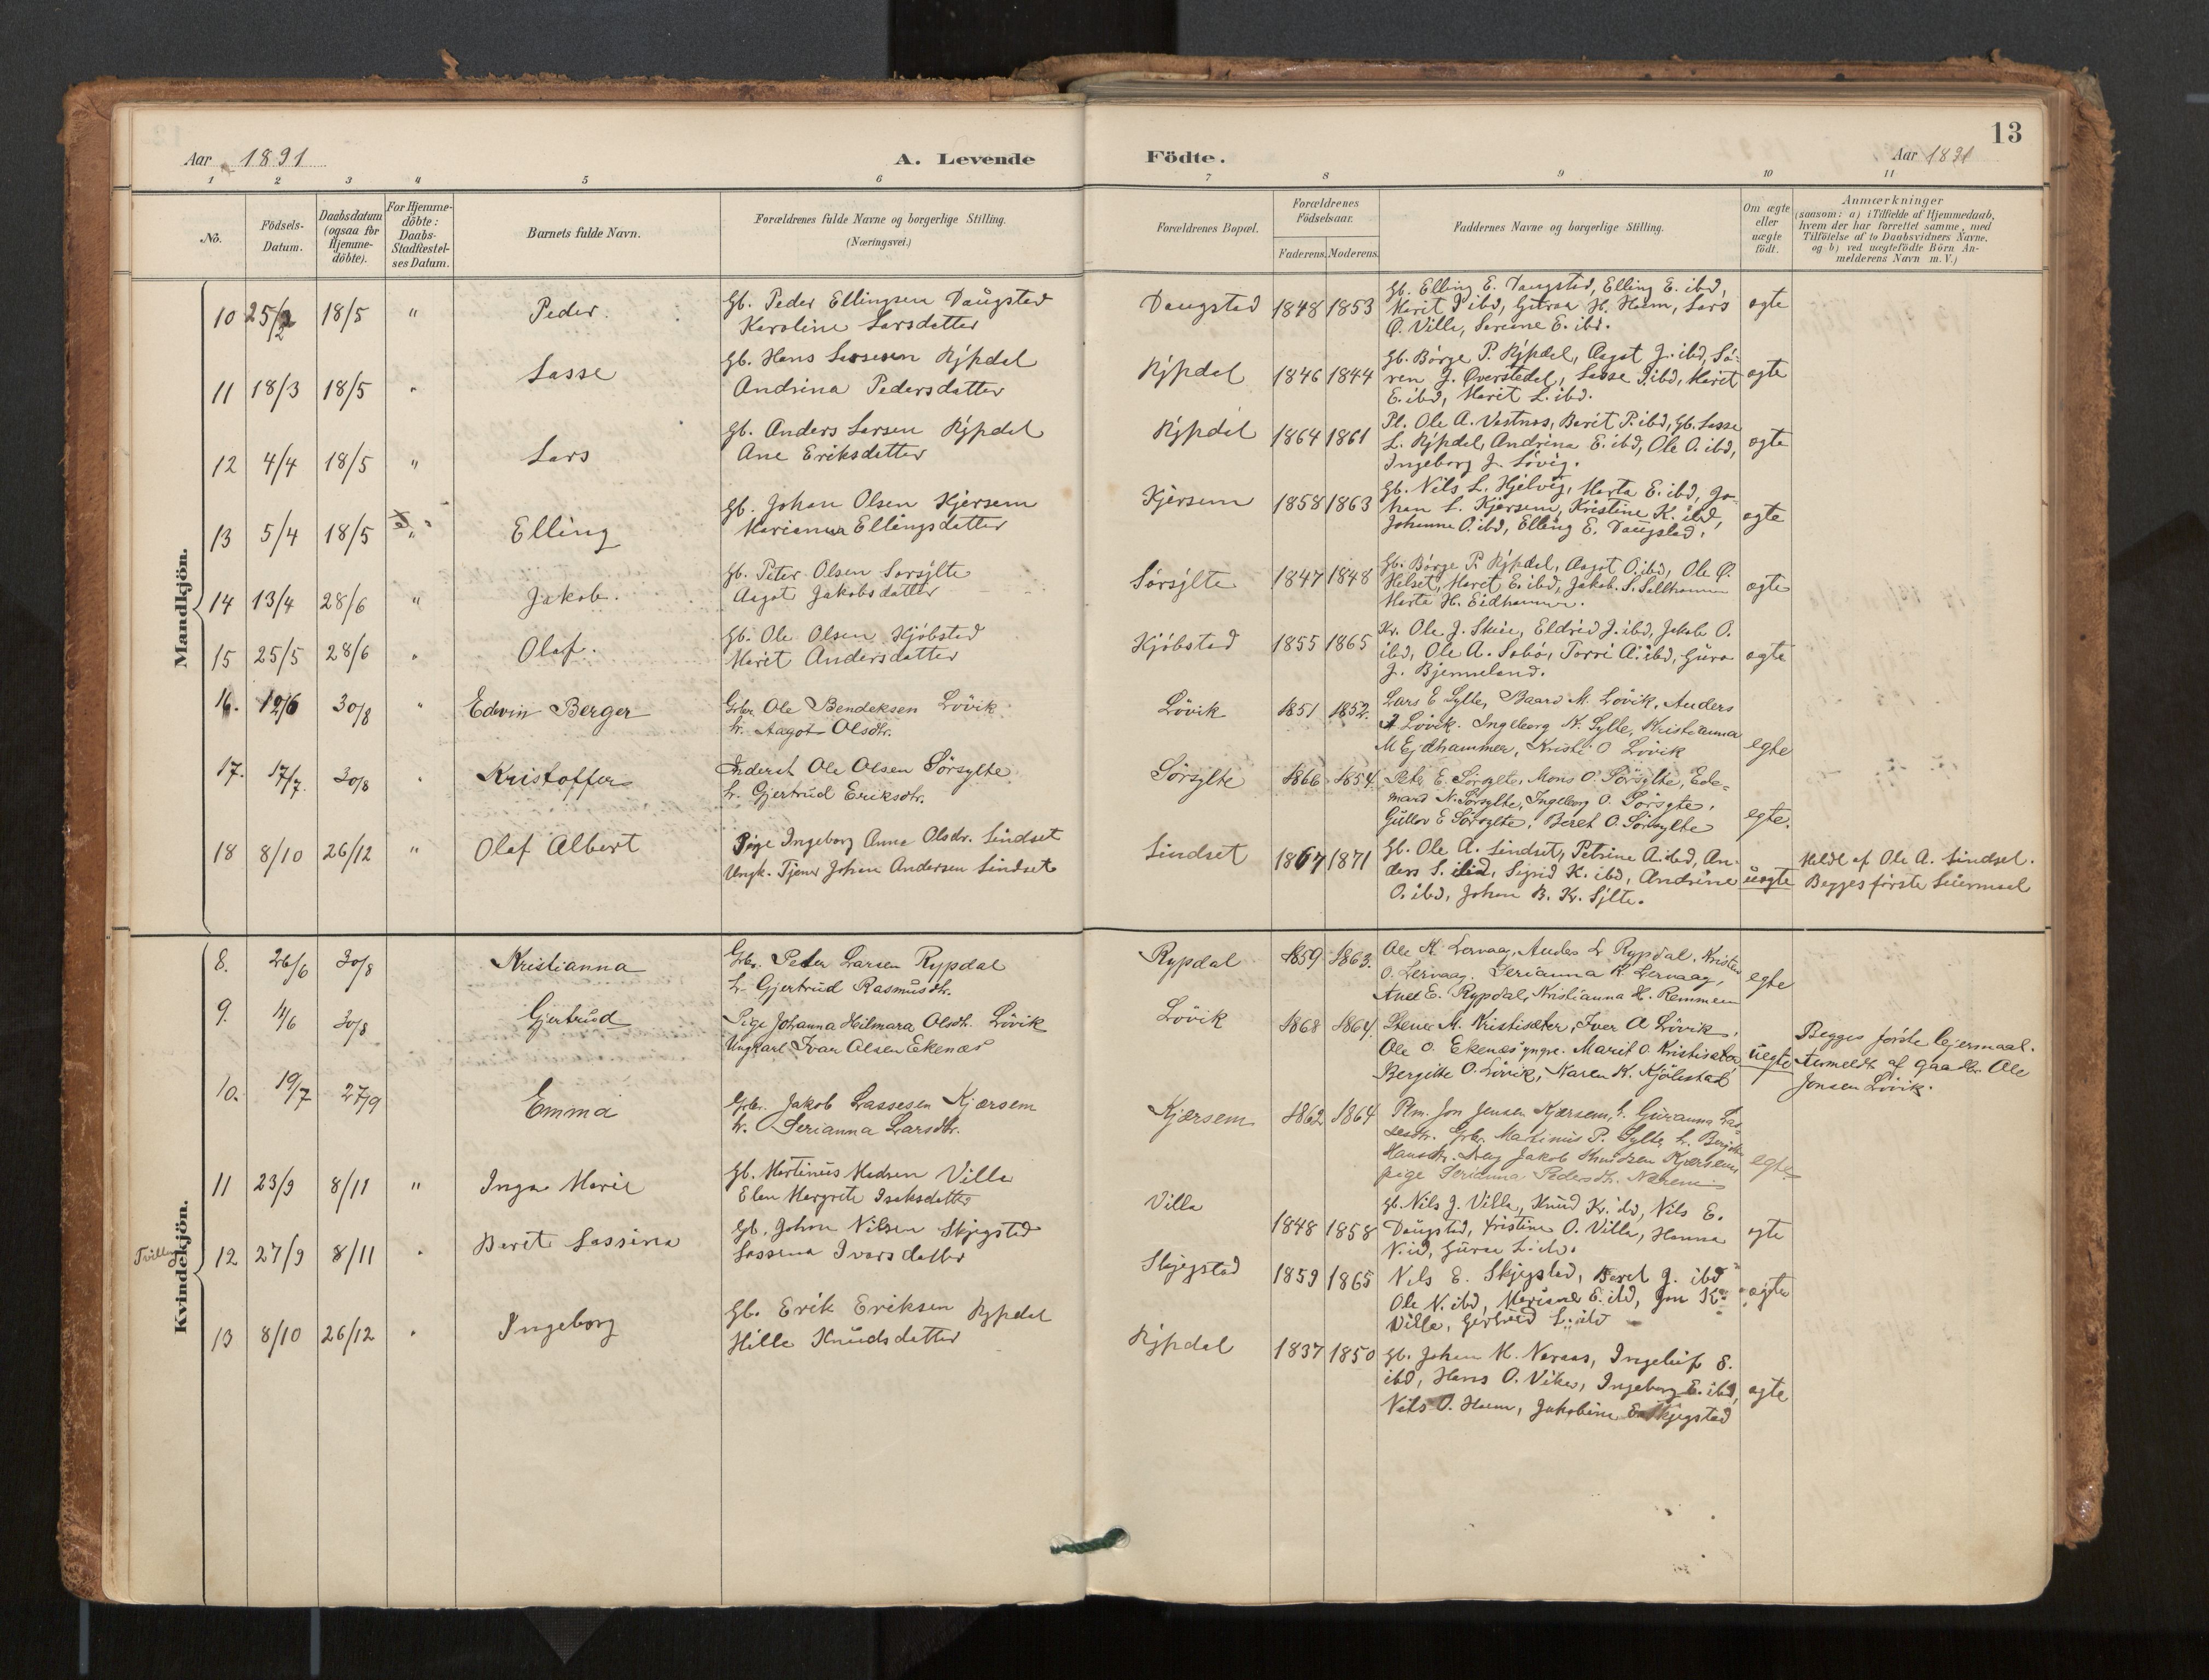 13
Aar 1891 A. Levende Födte. Aar 1891
1 2 3 4 5 6 7 8 9 10 11
No.
Födsels-Datum.
Daabsdatum (ogsaa for Hjemme-döbte).
For Hjemme-döbte: Daabs-Stadfæstel-ses Datum.
Barnets fulde Navn.
Forældrenes fulde Navne og borgerlige Stilling.
(Næringsvei.)
Forældrenes Bopæl.
Forældrenes Födselsaar.
Faderens. Moderens.
Faddernes Navne og borgerlige Stilling.
Om ægte eller uægte födt.
Anmærkninger
(saasom: a) i Tilfælde af Hjemmedaab,
hvem der har forrettet samme, med
Tilföielse af to Daabsvidners Navne,
og b) ved uægtefödte Börn An-
melderens Navn m. V.)
Mandkjön.
10 25/2 18/5 " Peder.
Gb. Peder Ellingsen Daugstad
Karoline Larsdatter
Daugstad 1848 1853
Gb. Elling E. Daugstad, Elling E. ibd,
Marit P ibd, H. Hum, Lars
O. Villa, E. ibd.
ægte
11 18/3 18/5 " Lasse
Gb. Hans Lassesen Rypdal
Andrina Pedersdatter
Rypdal 1846 1844
Gb. Börge P. Rypdal, Aagot J. ibd, Sö-
ren J. Överstedal, Lasse P. ibd, Marit
E. ibd, Marit L. ibd.
ægte
12 4/4 18/5 " Lars
Gb. Anders Larsen Rypdal
Ane Eriksdatter
Rypdal 1864 1861
Pl. Ole A. Vestnes, Berit P. ibd, Gb. Lasse
L. Rypdal, Andrina E. ibd, Ole A. ibd,
Ingeborg J. Lövig.
ægte
13 5/4 18/5 " Elling
Gb. Johan Olsen Kjersem
Marianna Ellingsdatter
Kjersem 1858 1863
Gb. Nils L. Hjelvig, Marta E. ibd, Jo-
han L. Kjersem, Kristine K. ibd,
Johanne O. ibd, Elling E. Daugstad.
ægte
14 13/4 28/6 " Jakob.
Gb. Peter Olsen Sørsylte
Aagot Jakobsdatter
Sörsylte 1847 1848
Gb. Börge P. Rypdal, Aagot O. ibd, Ole O.
Helset, Marit E. ibd, Jakob S.
Marta H. Eidhammer.
ægte
15 25/5 28/6 " Olaf.
Gb. Ole Olsen Kjöbstad
Marit Andersdatter
Kjöbstad 1855 1865
Kr. Ole J. Skeie, Eldrid J. ibd, Jakob O.
ibd, Ole A. Sabö, Torri A. ibd, Guro
J. Bjermeland.
ægte
16. 12/6 30/8 " Edvin Berger
Gbr. Ole Bendeksen Lövik
h. Aagot Olsdtr.
Lövik 1851 1852.
Lars E Sylte, Baard M. Lövik, Anders
Lövik. Ingeborg K. Sylte, Kristianna
M Ejdhammer, Kristi O Lövik
egte
17. 17/7. 30/8 " Kristoffer
Inderst Ole Olsen Sörsylte
h. Gjertrud Eriksdtr.
Sörsylte 1866 1854.
Peter E. Sörsylte, Mons O. Sörsylte, Ede-
mard N. Sörsylte, Ingeborg O. Sörsylte.
Gullov E Sörsylte, Beret O. Sörsylte
egte.
18 8/10 26/12 " Olaf Albert
Pige Ingeborg Anne Olsdr. Lindset
Ungk. Tjener Johan Andersen Lindset
Lindset 1867 1871
Gb. Ole A. Lindset, Petrine A. ibd, An-
ders S. ibd, Sigrid K. ibd, Andrine
O. ibd, Johan B. Kr. Sylte.
uægte
Meldt af Ole A. Lindset.
Begges förste Leiermaal
Kvindekjön.
8. 26/6 30/8 Kristianna
Gbr. Peter Larsen Rypdal
h. Gjertrud Rasmusdtr.
Rypdal 1859 1863.
Ole K. Lervaag, Anders L Rypdal, Kristen
O. Lervaag. Serianna K Lervaag,
Anet E. Rypdal, Kristianna H. Remmem
egte
9. 4/6 30/8 Gjertrud
Pige Johanna Hilmara Olsdtr. Lövik
Ungkarl Ivar Olsen Ekenæs
Lövik 1868 1864.
Stener M. Kristisæter, Iver A Lövik,
Ole O. Ekenæs yngre. Marit O. Kristisæter
Bergitte O. Lövik, Karen K. Kjölstad
uegte
Begges förste lejermaal.
Anmeldt af gaardbr. Ole
Jonsen Lövik.
10. 19/7 27/9 Emma
Gbr. Jakob Lassesen Kjærsem
h. Serianna Larsdtr.
Kjærsem 1862 1864
Plm. Jon Jensen Kjærsem, h. Gurianna Las-
sesdtr. Gbr. Martinus P. Sylte h. Bergitte
Hansdtr. Dreng Jakob Knudsen Kjærsem
pige Serianna Pedersdtr. Nærem
egte
11 23/9 8/11 " Inga Marie
Gb. Martinus Madsen Villa
Elen Margrete Isaksdatter
Villa 1848 1858
Gb. Nils J. Villa, Knud Kr. ibd, Nils E.
Daugstad, Kristine O. Villa, Hanna
N. ibd, Guroa L. ibd.
ægte
Tvilling
12 27/9 8/11 " Berit Lassina
Gb. Johan Nilsen Skjegstad
Lassina Ivarsdatter
Skjegstad 1859 1865
Nils E. Skjegstad, Beret J. ibd
Ole N. ibd, Mariane E. ibd, Jon K.
Villa, Gertrud L. ibd
ægte
13 8/10 26/12 " Ingeborg
Gb. Erik Eriksen Rypdal
Hille Knudsdatter
Rypdal 1837 1850
Gb. Johan M. Neraas, Ingeleif S.
ibd, Hans O. Viken, Ingeborg E. ibd,
Nils O. Hum, Jakobine E. Skjegstad
ægte